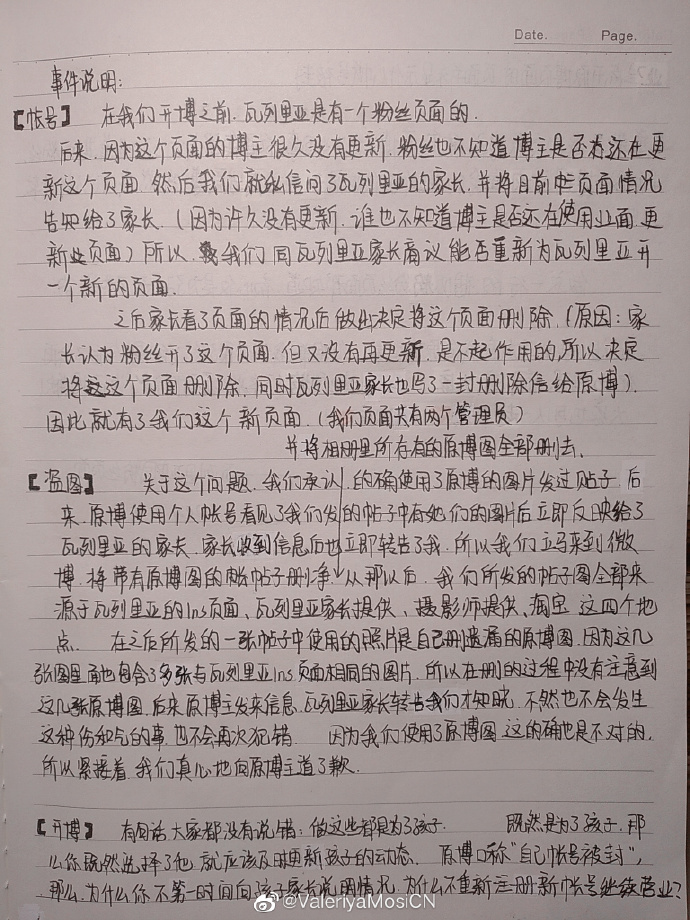 Date. Page.
事件说明:
【帐号】 在我们开博之前.瓦列里亚是有一个粉丝页面的.
后来.因为这个页面的博主很久没有更新.粉丝也不知道博主是否还在更
新这个页面.然后我们就私信问了瓦列里亚的家长.并将目前页面情况
告知给了家长.(因为许久没有更新.谁也不知道博主是否还在使用 更
新此页面)所以.我们同瓦列里亚家长商议能否重新为瓦列里亚开
一个新的页面.
之后家长看了页面的情况后做出决定将这个页面删除.(原因:家
长认为粉丝开了这个页面.但又没有再更新.是不起作用的,所以决定
将这个页面删除.同时瓦列里亚家长也写了一封删除信给原博).
因此就有了我们这个新页面.(我们页面共有两个管理员)
并将相册里所存有的原博图全部删去.
【盗图】 关于这个问题.我们承认.的确使用了原博的图片发过贴子.后
来.原博使用个人帐号看见了我们发的帖子中有她们的图片后立即反映给了
瓦列里亚的家长.家长收到信息后也立即转告了我.所以我们立马来到微
博.将带有原博图的帖子删净.从那以后.我们所发的帖子图全部来
源于瓦列里亚的Ins页面、瓦列里亚家长提供、摄影师提供、淘宝 这四个地
点. 在之后所发的一张帖子中使用的照片是自己删遗漏的原博图.因为这几
张图里面也包含了多张与瓦列里亚Ins页面相同的图片.所以在删的过程中没有注意到
这几张原博图.后来原博主发来信息.瓦列里亚家长转告我们才知晓.不然也不会发生
这种伤和气的事.也不会再次犯错. 因为我们使用了原博图.这的确也是不对的.
所以紧接着.我们真心地向原博主道了歉.
【开博】 有句话大家都没有说错:做这些都是为了孩子. 既然是为了孩子.那
么你既然选择了他.就应该及时更新孩子的动态. 原博口称"自己帐号被封",
那么.为什么你不第一时间向孩子家长说明情况.为什么不重新注册新帐号继续营业?
@ValeriyaMosiCN